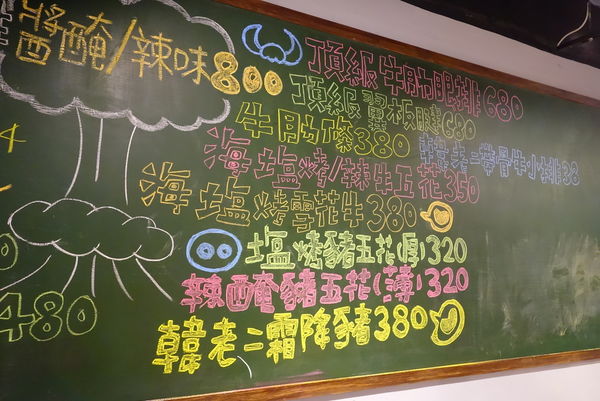 將
醬醃/辣味800
頂級牛肋眼排680
頂級翼板腱680
牛肋條380
韓老二帶骨牛小排38
海塩烤/辣牛五花350
海塩烤雪花牛380
塩烤豬五花(厚)320
辣醃豬五花(薄)320
韓老二霜降豬380
4
0
480